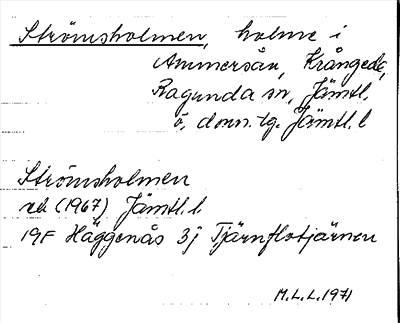 Strömsholmen, holme i
Ammersån, Krångede,
Ragunda sn, Jämtl.
ö. domn. tg. Jämtl. l
Strömsholmen
rek (1967) Jämtl. l
19F Häggenås 3j Tjärnflotjärnen
M.L.L. 1971